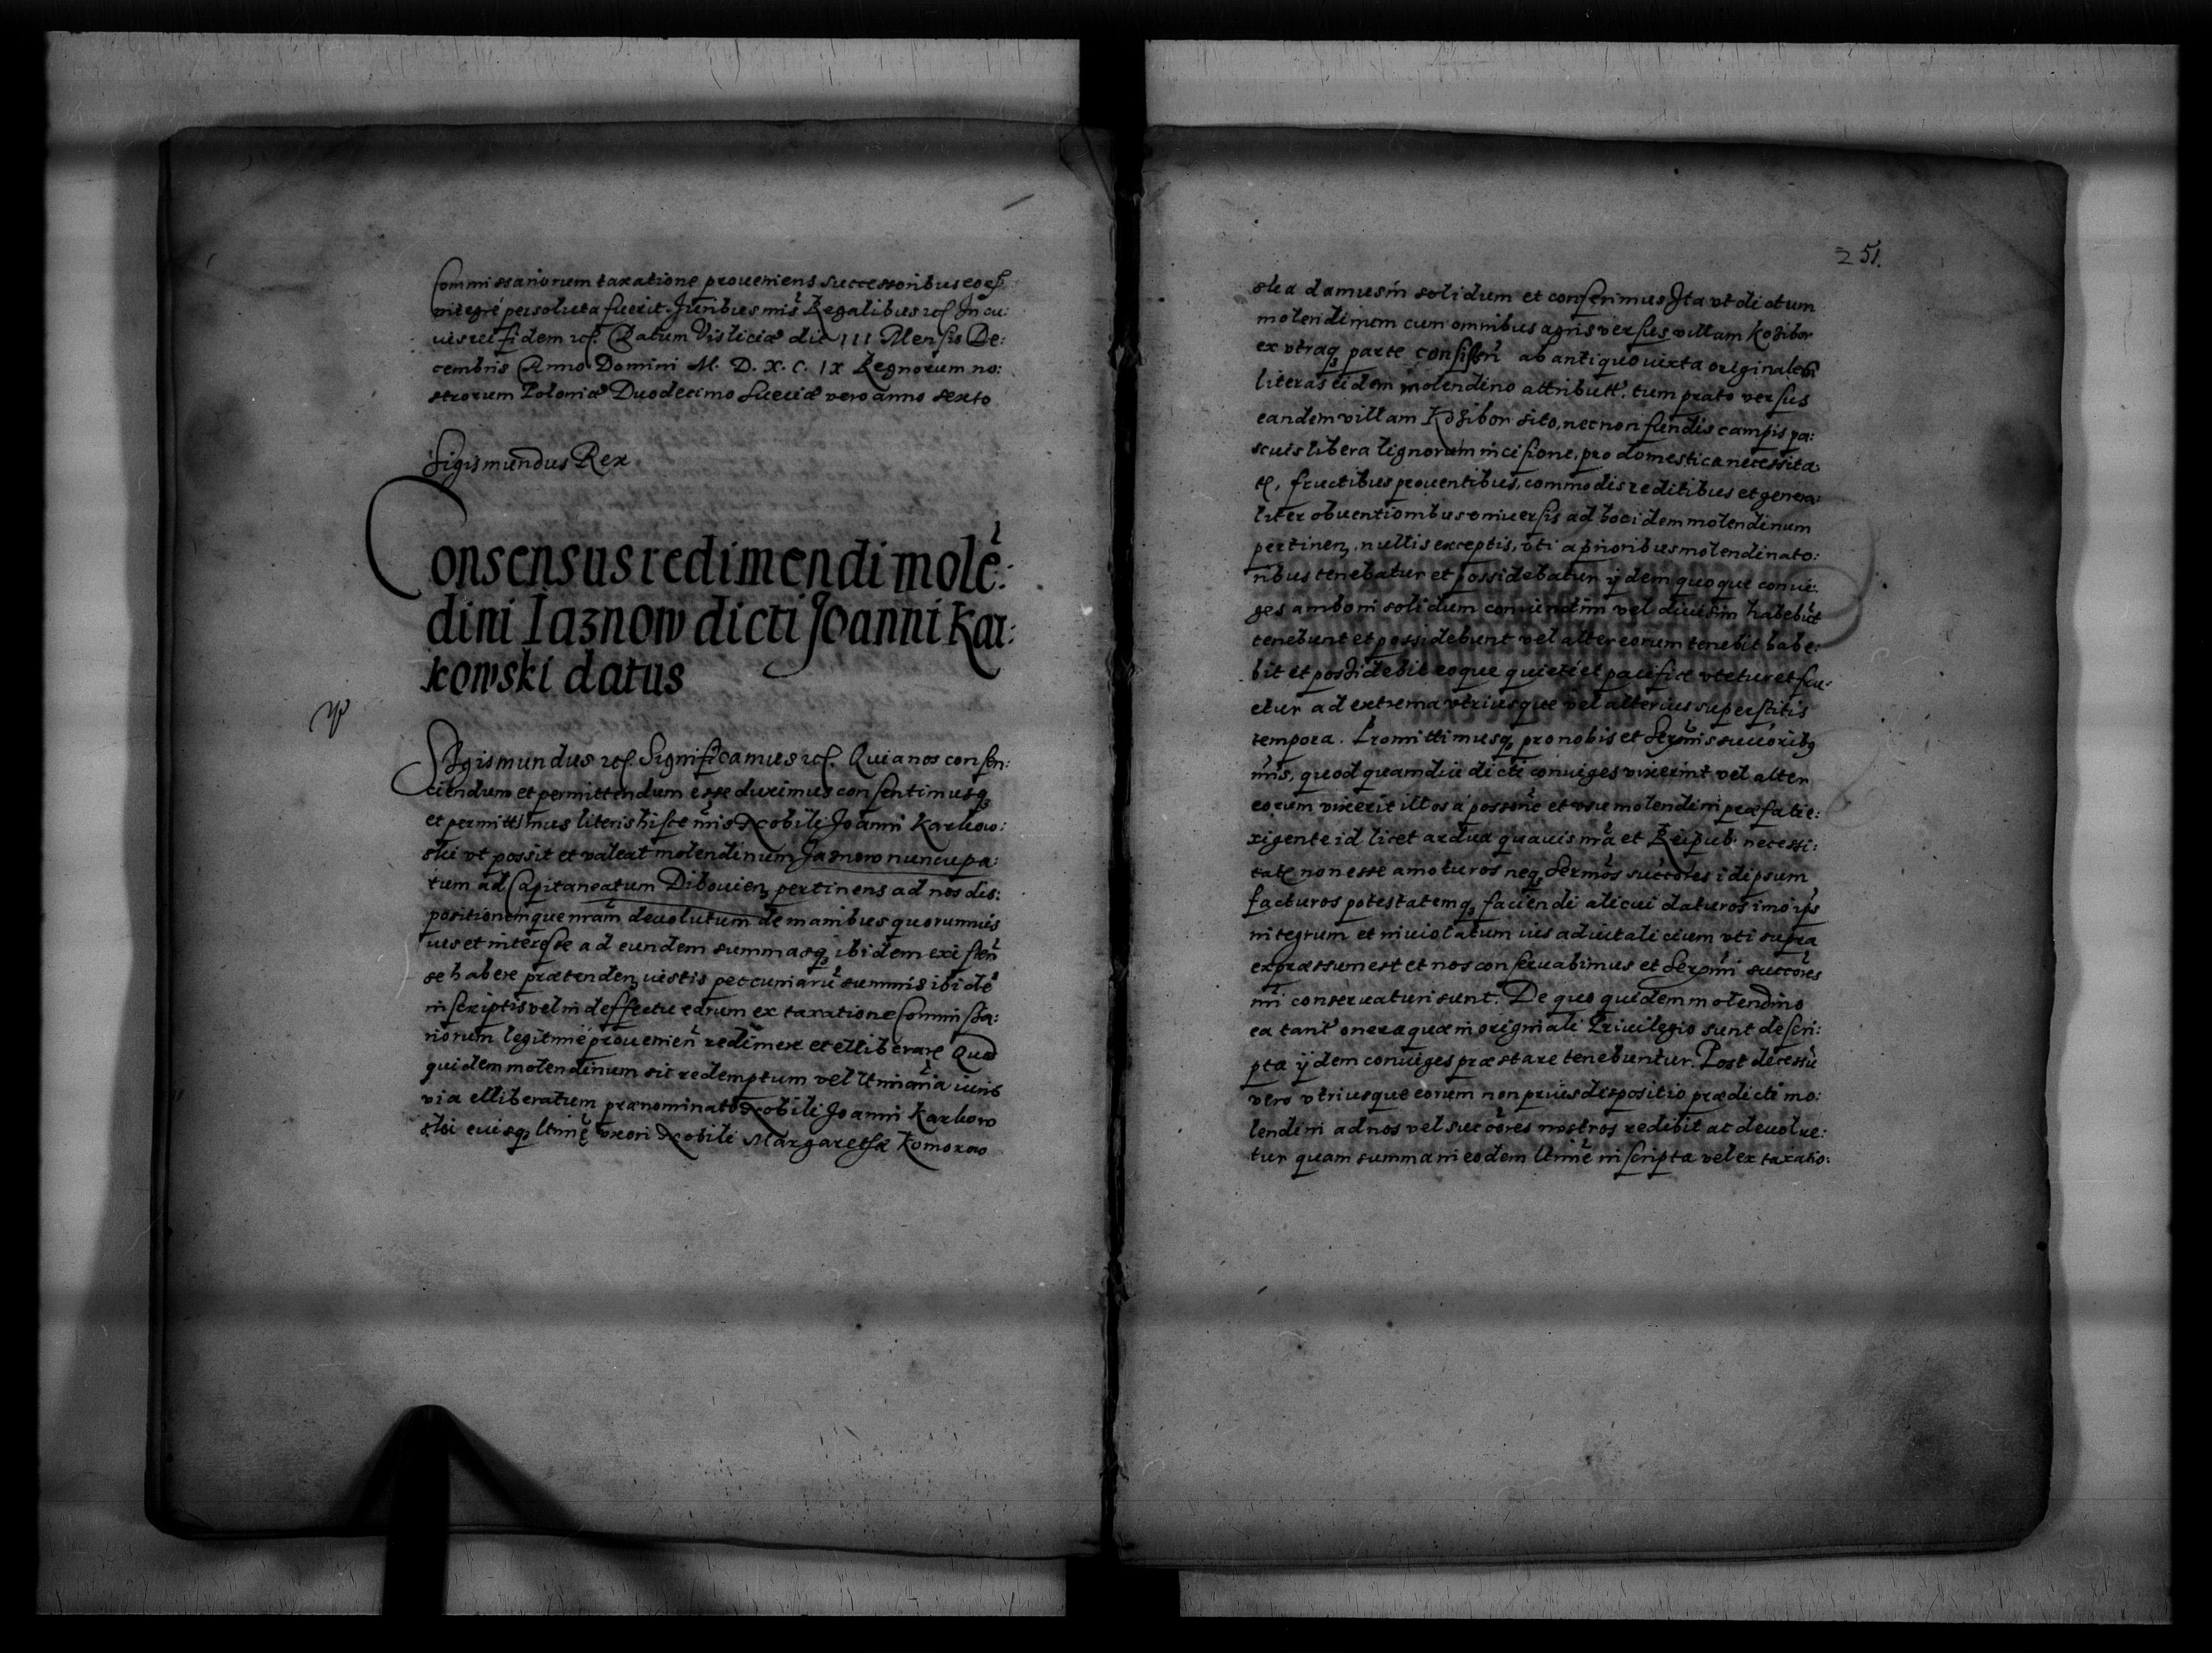 Commissariorum taxatione proueniens successoribus eorū
integrè persoluta fuerit. Iuribus nr̃is Regalibus etc̃. In cu:
ius rei fidem etc̃. Datum Visliciæ die III Mensis De:
cembris Anno Domini M. D. X. C. IX Regnorum no:
strorum Poloniæ Duodecimo Sueciæ vero anno sexto
Sigismundus Rex
Consensus redimendi molē:
dini Iaznow dicti Joanni Kar:
kowski datus
Sigismundus etc̃. Significamus etc̃. Quia nos consen:
ciendum et permittendum esse duximus consentimusq;
et permittimus literis hisce nr̃is Nobili Joanni Karkow:
ski vt possit et valeat molendinum Jasnow nuncupa:
tum ad Capitaneatum Dibouien̄ pertinens ad nos dis:
positionemque nram̃ deuolutum de manibus quorumuis
ius et interesse ad eundem summasq; ibidem existen̄
se habere prætenden̄ iustis peccuniarū summis ibidē
inscriptis vel in deffectu earum ex taxatione Commissa:
riorum legitimè prouenien̄ redimere et elliberare Quod
quidem molendinum sic redemptum vel vltimaria iuris
via elliberatum prænominato Nobili Joanni Karkow
ski eiusq; ltimę vxori Nobili Margarethæ Komorow
251.
ska damus in solidum et conferimus Ita vt dictum
molendinum cum omnibus agris versus villam Kozibor
ex vtraq; parte consisten̄ ab antiquo iuxta originales
literas eidem molendino attribut̃. tum prato versus
eandem villam Kozibor sito, nec non fundis campis pa:
scuis libera lignorum incisione, pro domestica necessita
te, fructibus prouentibus, commodis reditibus et genera:
liter obuentionibus vniuersis ad hoc idem molendinum
pertinen̄, nullis exceptis, vti a prioribus molendinato:
ribus tenebatur et possidebatur ijdem quoque coniu:
ges ambo in solidum coniunctim vel diuisim habebūt
tenebunt et possidebunt vel alter eorum tenebit habe:
bit et possidebit eoque quietè et pacifice vtetur et fru:
etur ad extrema vtriusque vel alterius superstitis
tempora. Promittimusq; pro nobis et Serm̃is succ̃oribq;
nr̃is, quod quamdiu dicti coniuges vixerint vel alter
eorum vixerit illos à possone et vsu molendini præfati e:
xigente id licet ardua quauis nra et Reipub. necessi:
tate non esse amoturos neq; Serm̃os succ̃ores id ipsum
facturos potestatemq; faciendi alicui daturos imo ips
integrum et inuiolatum ius aduitalicium vti supra
expressum est et nos conseruabimus et Serm̃i succ̃ores
nr̃i conseruaturi sunt. De quo quidem molendino
ea tant̃ onera quæ in originali Priuilegio sunt descri:
pta ijdem coniuges præstare tenebuntur. Post decessū
vero vtriusque eorum non prius dispositio prædicti mo:
lendini ad nos vel succ̃ores nostros redibit ac deuolue:
tur quam summa in eodem ltimè inscripta vel ex taxatio: